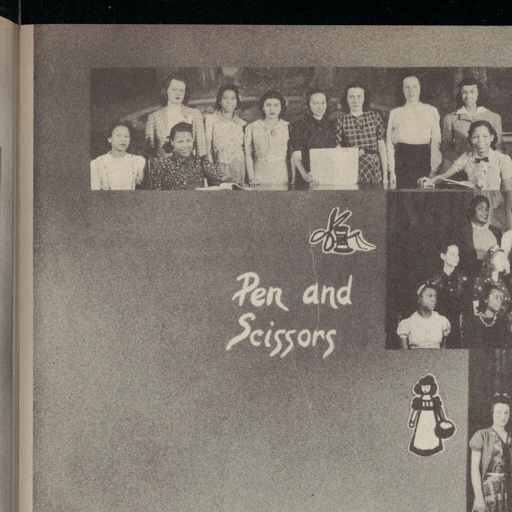 Pen and
Scissors